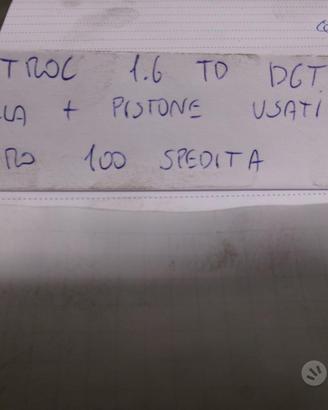 TROC 1.6 TD DGT
LA + PISTONE USATI
RO 100 SPEDITA